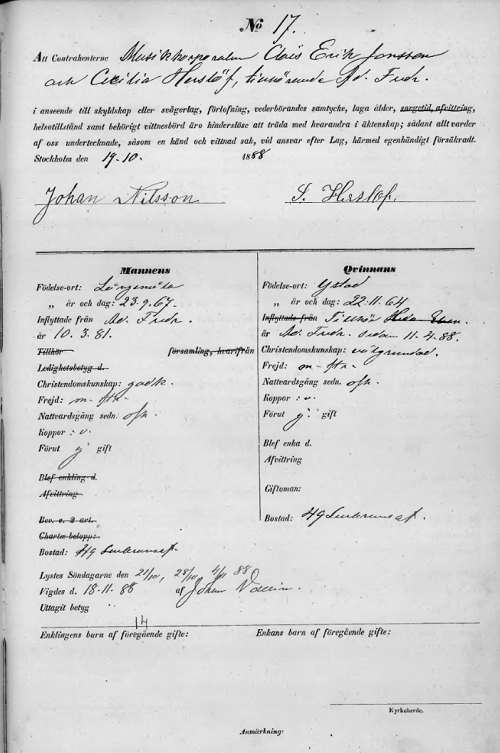 No 17.
Att Contrahenterne Musikkorporalen Claës Erik Jonsson
och Cecilia Herslöf, tillhörande Ad. Fredr.
i anseende till skyldskap eller svågerlag, förlofning, vederbörandes samtycke, laga ålder, sorgetid, afvittring,
helsotillstånd samt behörigt vittnesbörd äro hinderslöse att träda med hvarandra i äktenskap; sådant allt varder
af oss undertecknade, såsom en känd och vittnad sak, vid ansvar efter Lag, härmed egenhändigt försäkradt.
Stockholm den 19. 10. 1888
Johan Nilsson
S. Herslöf.
Mannens
Födelse-ort:
„ år och dag: 23. 9. 67.
Inflyttade från Ad. Fredr.
år 10. 3. 81.
Tillhör församling, hvarifrån
Ledighetsbetyg d.
Christendomskunskap: godk.
Frejd: m-fta-
Nattvardsgång sedn. ofta.
Koppor: v.
Förut ej gift
Blef enkling d.
Afvittring
Bev. o. 2 art.
Chartæ belopp:
Bostad: 49
Qvinnans
Födelse-ort: Ystad
„ år och dag: 22. 11. 64
Inflyttade från
år Ad. Fredr. sedan 11. 4. 88.
Christendomskunskap: välgrundad.
Frejd: m-fta-
Nattvardsgång sedn. ofta.
Koppor: v.
Förut ej gift
Blef enka d.
Afvittring
Giftoman:
Bostad: 49
Lystes Söndagarne den 21/10, 28/10, 4/11 88
Vigdes d. 18-11. 88 af Johan Wallin.
Uttagit betyg
14
Enklingens barn af föregående gifte:
Enkans barn af föregående gifte:
Kyrkoherde.
Anmärkning: